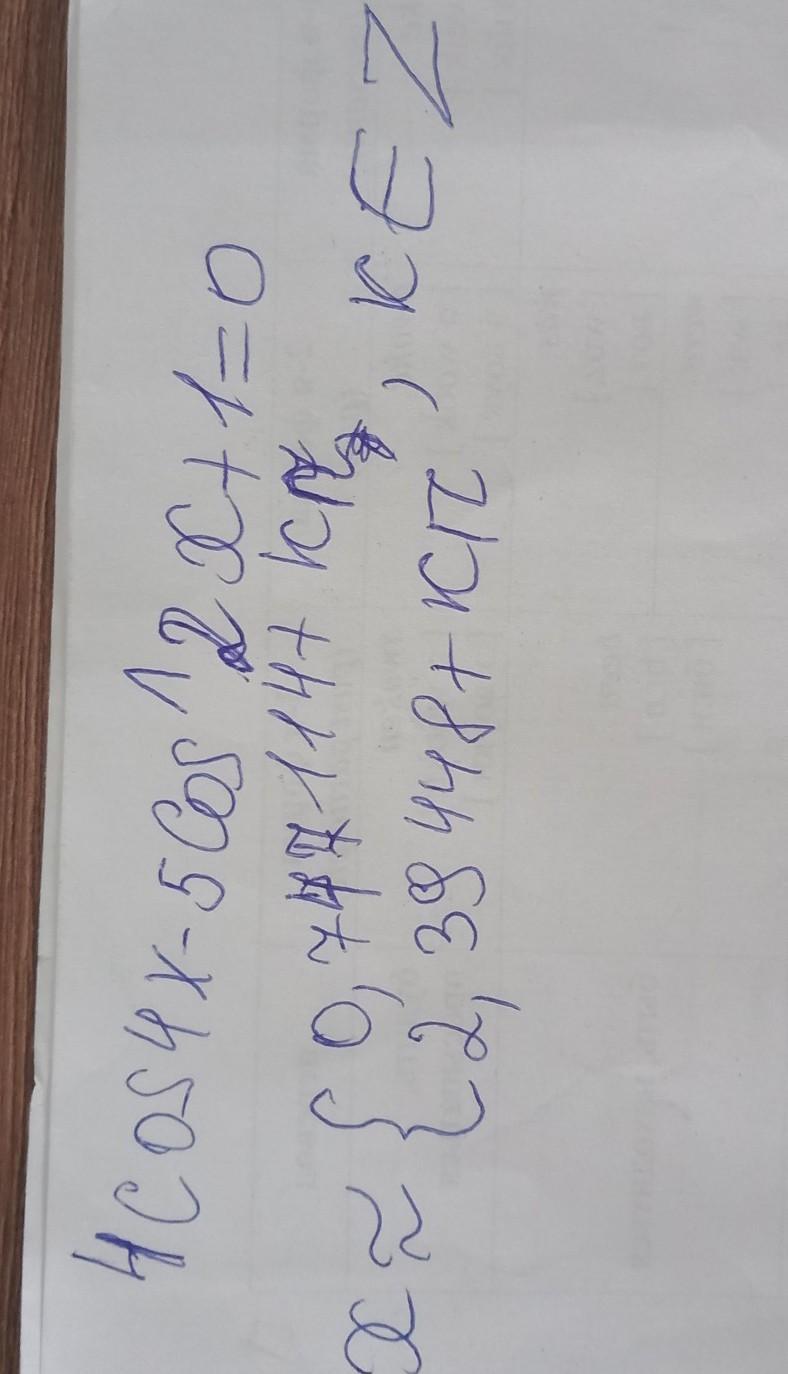 4cos4x-5Cos^2x+1=0
x≈{0,747114+kπ
{2,39448+kπ, k∈Z